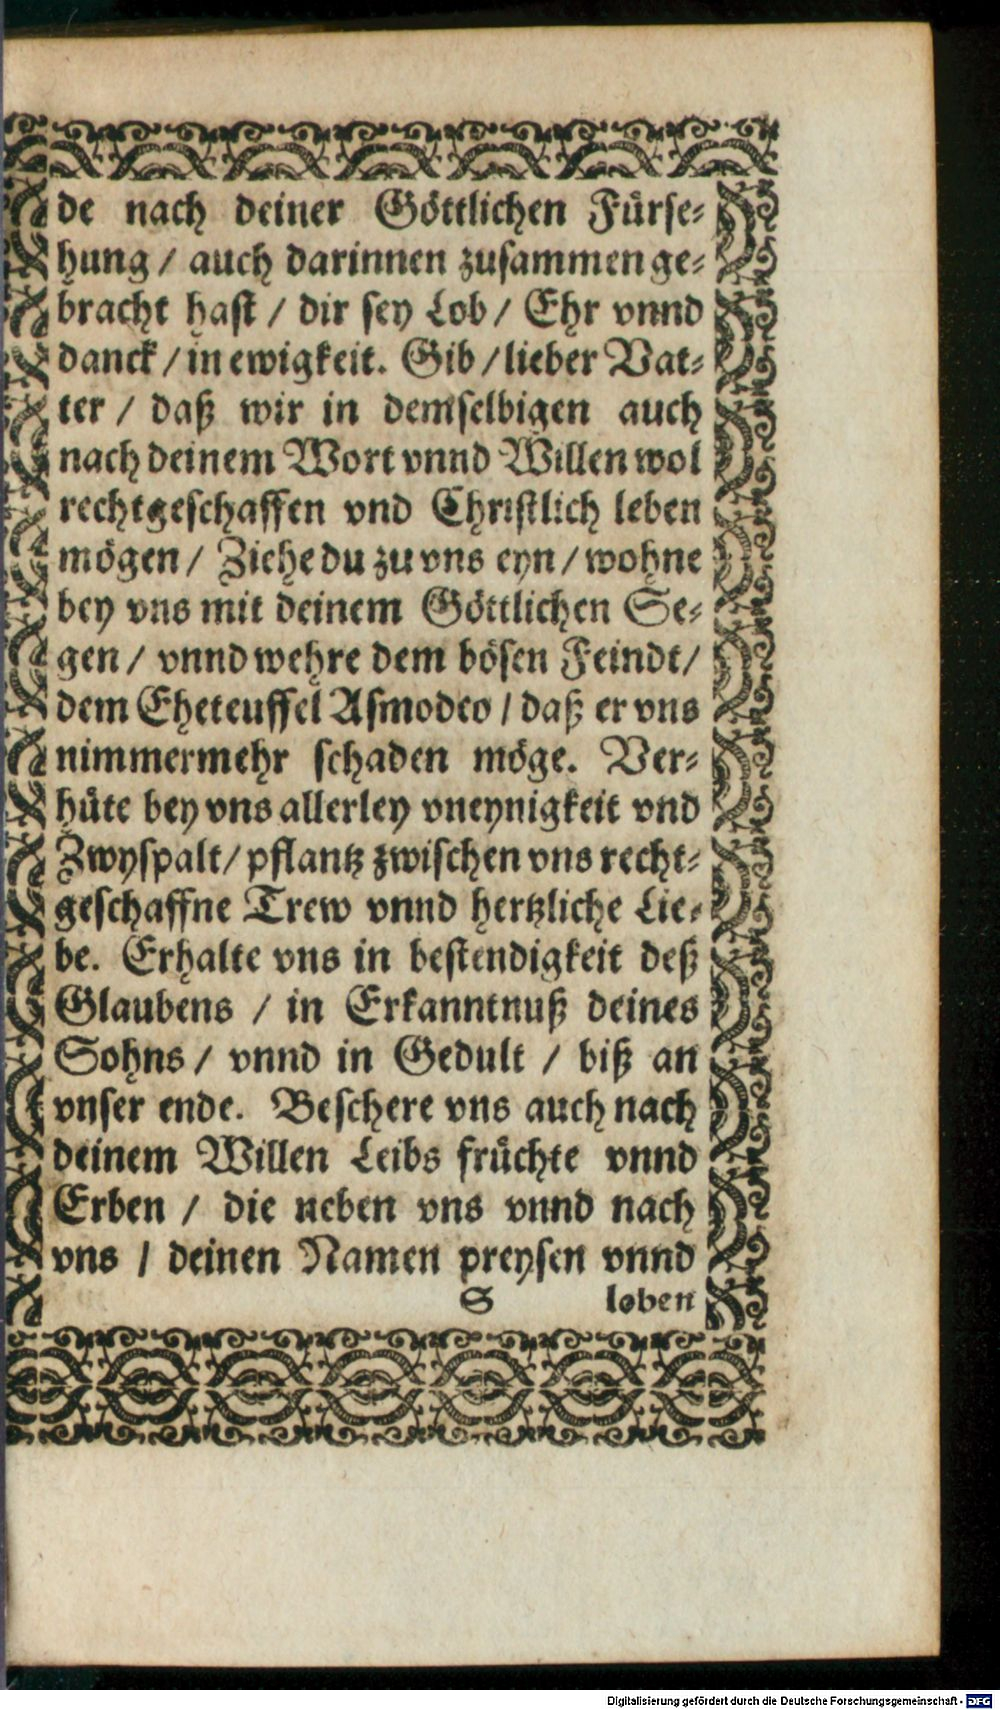 de nach deiner Göttlichen Fürse-
hung / auch darinnen zusammen ge-
bracht hast / dir sey Lob / Ehr vnnd
danck / in ewigkeit. Gib / lieber Vat-
ter / daß wir in demselbigen auch
nach deinem Wort vnnd Willen wol
rechtgeschaffen vnd Christlich leben
mögen / Ziehe du zu vns eyn / wohne
bey vns mit deinem Göttlichen Se-
gen / vnnd wehre dem bösen Feindt /
dem Eheteuffel Asmodeo / daß er vns
nimmermehr schaden möge. Ver-
hüte bey vns allerley vneynigkeit vnd
Zwyspalt / pflantz zwischen vns recht-
geschaffne Trew vnnd hertzliche Lie-
be. Erhalte vns in bestendigkeit deß
Glaubens / in Erkanntnuß deines
Sohns / vnnd in Gedult / biß an
vnser ende. Beschere vns auch nach
deinem Willen Leibs früchte vnnd
Erben / die neben vns vnnd nach
vns / deinen Namen preysen vnnd
S loben
Digitalisierung gefördert durch die Deutsche Forschungsgemeinschaft - DFG